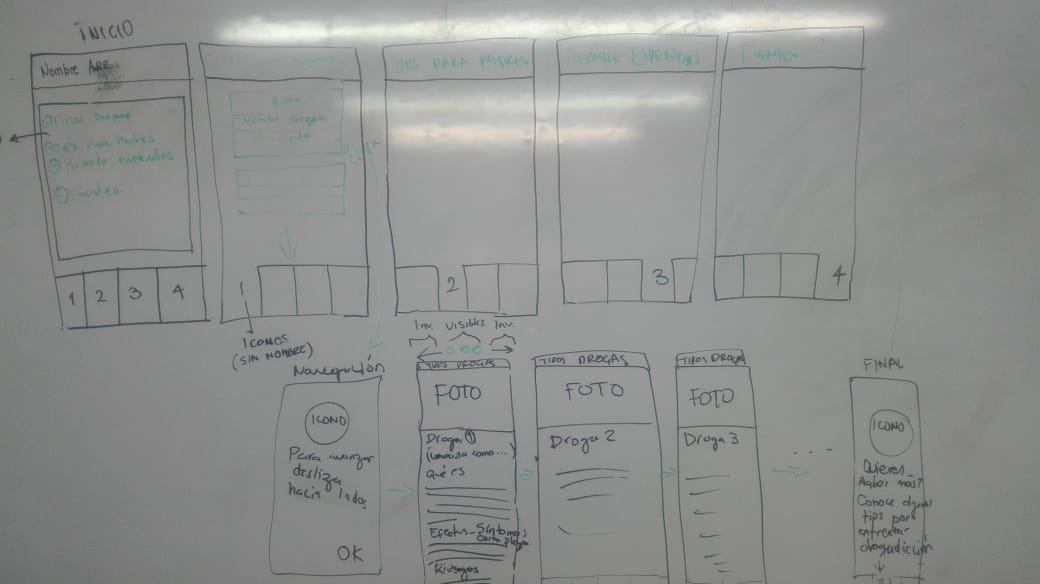 INICIO
Nombre APP
Tips para Padres
Fuentes
1 2 3 4
Foto
1
ICONOS
(SIN NOMBRE)
TIPS PARA PADRES
2
REPORTE EXPENDIOS
3
FUENTES
4
Navegución
ICONO
Para avanzar
desliza
hacia lados
OK
Inv. Visibles Inv.
TIPOS DROGAS
FOTO
Droga 1
(conocida como...)
Qué es
Efectos - Síntomas
corto plazo
Riesgos
TIPOS DROGAS
FOTO
Droga 2
TIPOS DROGA
FOTO
Droga 3
...
FINAL
ICONO
Quieres
saber más?
Conoce algunos
tips para
enfrentar
drogadicción